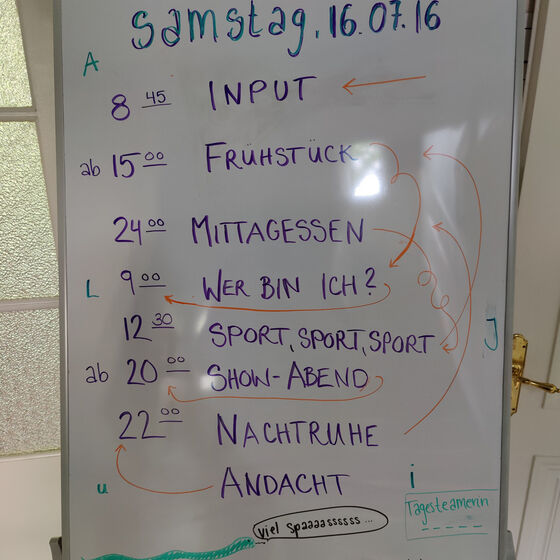 Samstag, 16.07.16
A
8 45 INPUT
ab 15 00 FRÜHSTÜCK
24 00 MITTAGESSEN
L 9 00 WER BIN ICH?
12 30 SPORT, SPORT, SPORT
J
ab 20 00 SHOW-ABEND
22 00 NACHTRUHE
u ANDACHT i
Tagesteamerin
viel spaaaassssss...